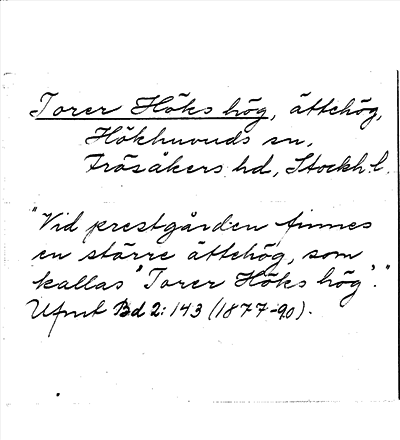 Torer Höks hög, ättehög,
Hökhuvuds sn,
Frösåkers hd, Stockh. l.
"Vid prestgården finnes
en större ättehög, som
kallas 'Torer Höks hög'."
Ufmt Bd 2: 143 (1877-90).